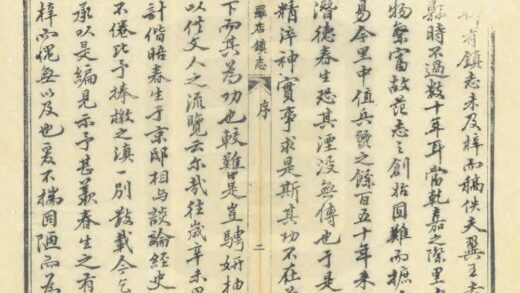 有鎮志未及梓而稿佚夫翼王
縣時不過數十年耳當乾嘉之際里
物豪富故范志之創始固難而摭
易今里中值兵燹之餘百五十年來
潛德春生恐其湮没無傳也于是
精淬神實事求是斯其功不在
羅店鎮志 序 二
下而其為功也較難是豈騁妍抽
以供文人之流覽云尔哉往歲辛未
計偕晤春生于京邸相与談論經史
不倦比予捧檄之滇一别數載今
承以是編見示予甚羨春生之有
梓而愧無以及也爰不揣固陋而為